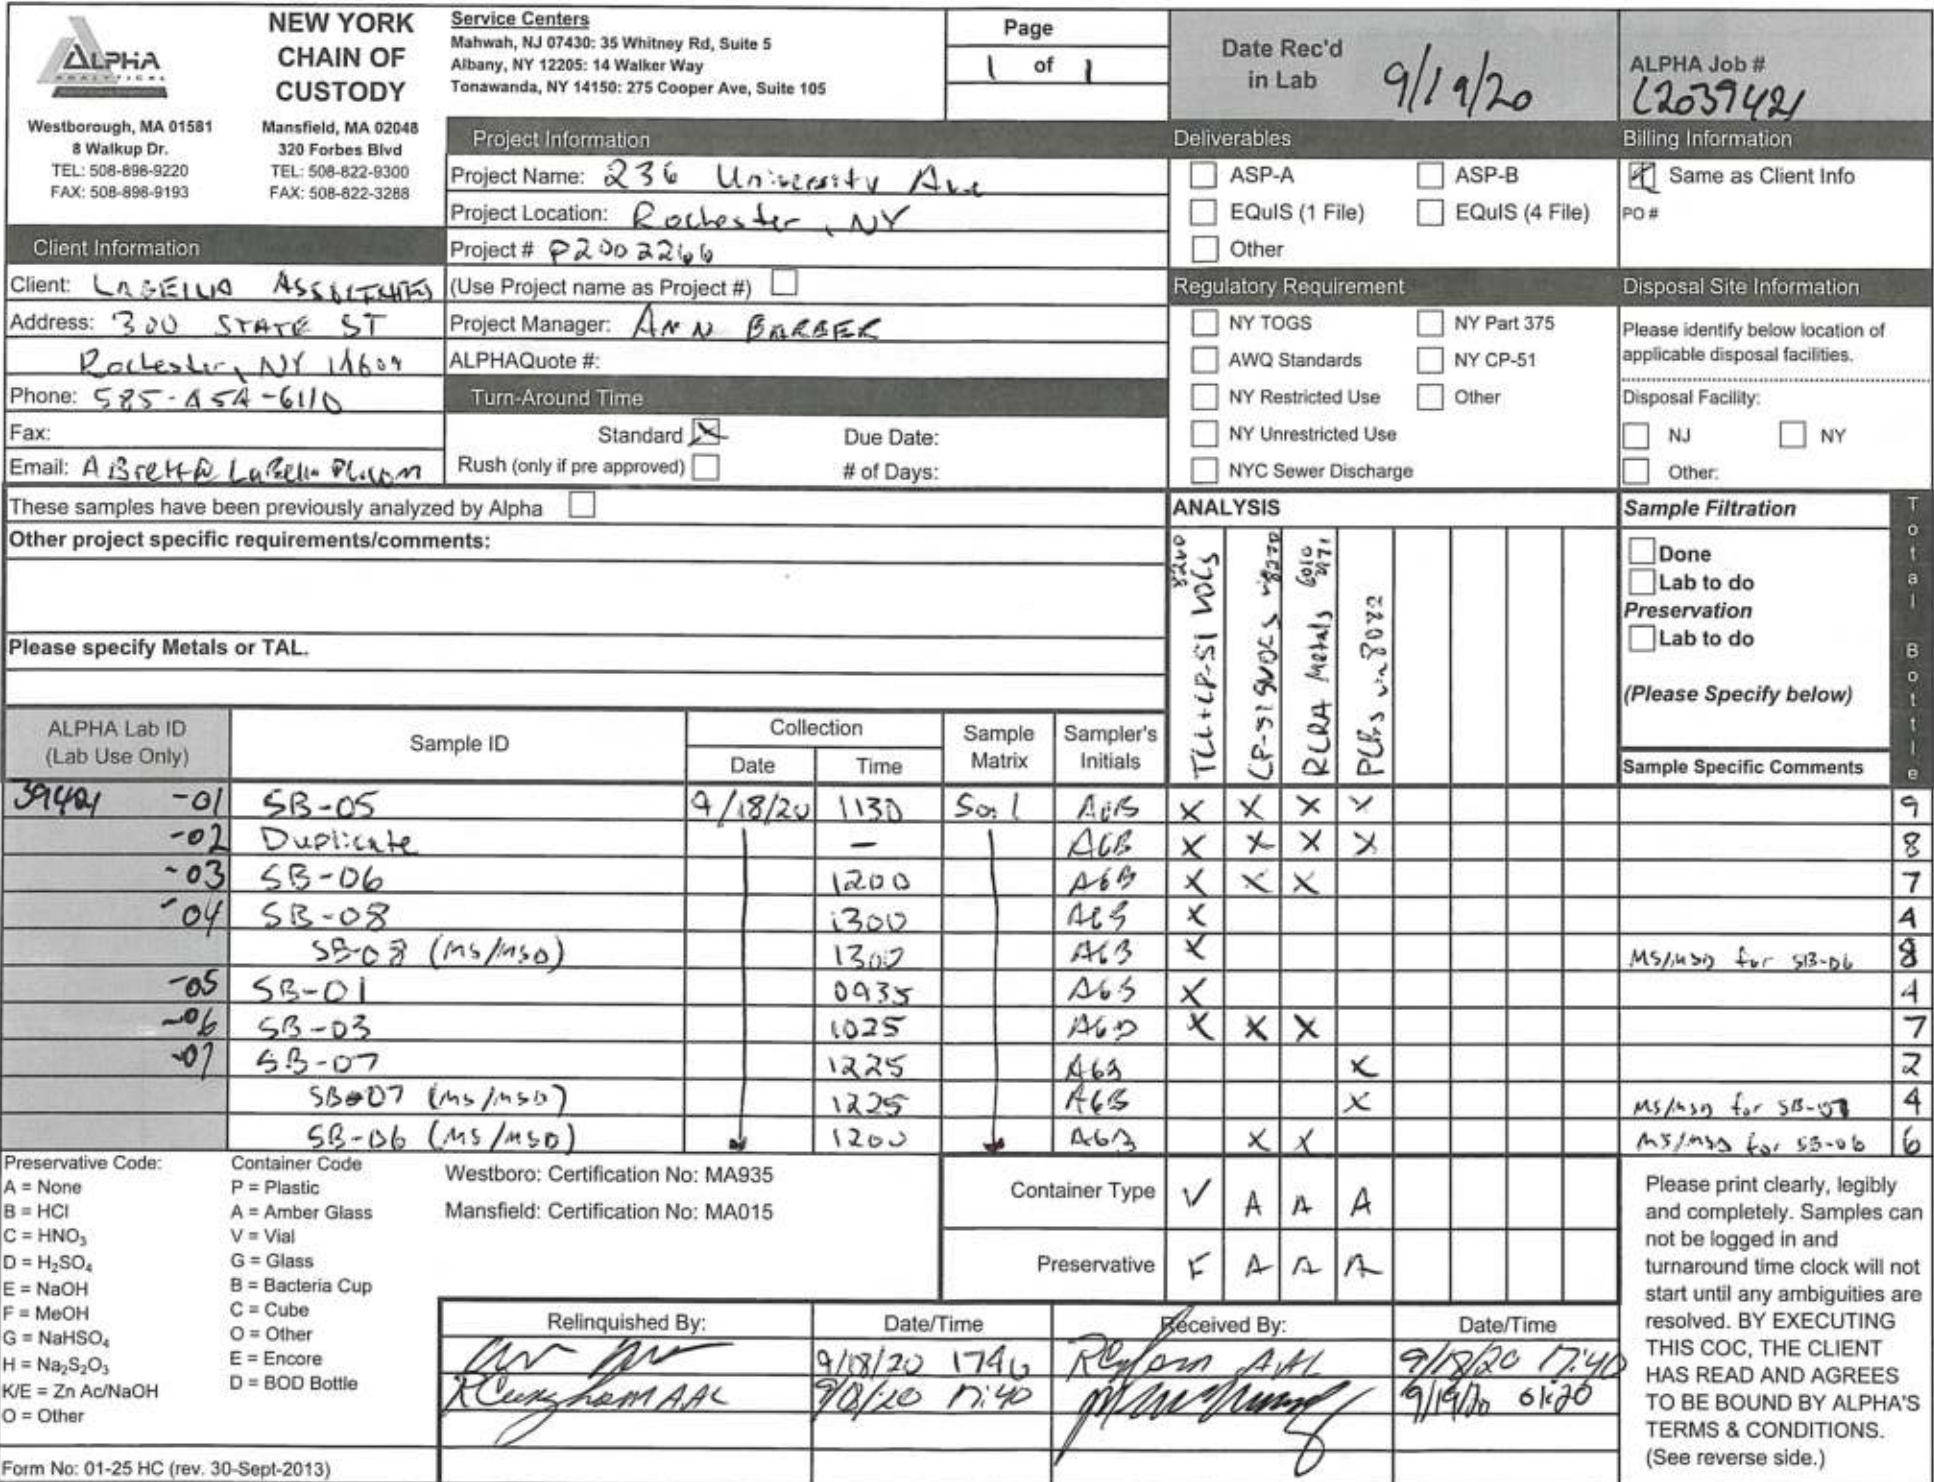 ALPHA
ANALYTICAL
NEW YORK
CHAIN OF
CUSTODY
Westborough, MA 01581
8 Walkup Dr.
TEL: 508-898-9220
FAX: 508-898-9193
Mansfield, MA 02048
320 Forbes Blvd
TEL: 508-822-9300
FAX: 508-822-3288
Service Centers
Mahwah, NJ 07430: 35 Whitney Rd, Suite 5
Albany, NY 12205: 14 Walker Way
Tonawanda, NY 14150: 275 Cooper Ave, Suite 105
Page
1 of 1
Date Rec'd
in Lab 9/19/20
ALPHA Job #
L2039421
Project Information
Project Name: 236 University Ave
Project Location: Rochester, NY
Project # P2002266
(Use Project name as Project #)
Project Manager: ANN BARBER
ALPHAQuote #:
Turn-Around Time
Standard X Due Date:
Rush (only if pre approved) # of Days:
Client Information
Client: LABELLA ASSOCIATES
Address: 300 STATE ST
Rochester, NY
Phone: 585-454-6110
Fax:
Email:
Deliverables
ASP-A ASP-B
EQuIS (1 File) EQuIS (4 File)
Other
Regulatory Requirement
NY TOGS NY Part 375
AWQ Standards NY CP-51
NY Restricted Use Other
NY Unrestricted Use
NYC Sewer Discharge
Billing Information
Same as Client Info
PO #
Disposal Site Information
Please identify below location of
applicable disposal facilities.
Disposal Facility:
NJ NY
Other:
These samples have been previously analyzed by Alpha
Other project specific requirements/comments:
Please specify Metals or TAL.
ANALYSIS
TCL+CP-51 VOCs 8260
CP-51 SVOCs via 8270
RCRA Metals 6010
PCBs via 8082
Sample Filtration
Done
Lab to do
Preservation
Lab to do
(Please Specify below)
Sample Specific Comments
Total Bottle
ALPHA Lab ID
(Lab Use Only)
Sample ID
Collection
Date Time
Sample
Matrix
Sampler's
Initials
39421 -01 SB-05 9/18/20 1130 Soil AGB X X X X 9
-02 Duplicate — AGB X X X X 8
-03 SB-06 1200 AGB X X X 7
-04 SB-08 1300 AGB X 4
SB-08 (MS/MSD) 1300 AGB X MS/MSD for SB-06 8
-05 SB-01 0935 AGB X 4
-06 SB-03 1025 AGB X X X 7
-07 SB-07 1225 AGB X 2
SB-07 (MS/MSD) 1225 AGB X MS/MSD for SB-07 4
SB-06 (MS/MSD) 1200 AGB X X MS/MSD for SB-06 6
Preservative Code:
A = None
B = HCl
C = HNO₃
D = H₂SO₄
E = NaOH
F = MeOH
G = NaHSO₄
H = Na₂S₂O₃
K/E = Zn Ac/NaOH
O = Other
Container Code
P = Plastic
A = Amber Glass
V = Vial
G = Glass
B = Bacteria Cup
C = Cube
O = Other
E = Encore
D = BOD Bottle
Westboro: Certification No: MA935
Mansfield: Certification No: MA015
Container Type V A A A
Preservative F A A A
Relinquished By: Date/Time Received By: Date/Time
9/18/20 AAL 9/18/20 17:40
AAL 17:40 9/19/20
Please print clearly, legibly
and completely. Samples can
not be logged in and
turnaround time clock will not
start until any ambiguities are
resolved. BY EXECUTING
THIS COC, THE CLIENT
HAS READ AND AGREES
TO BE BOUND BY ALPHA'S
TERMS & CONDITIONS.
(See reverse side.)
Form No: 01-25 HC (rev. 30-Sept-2013)